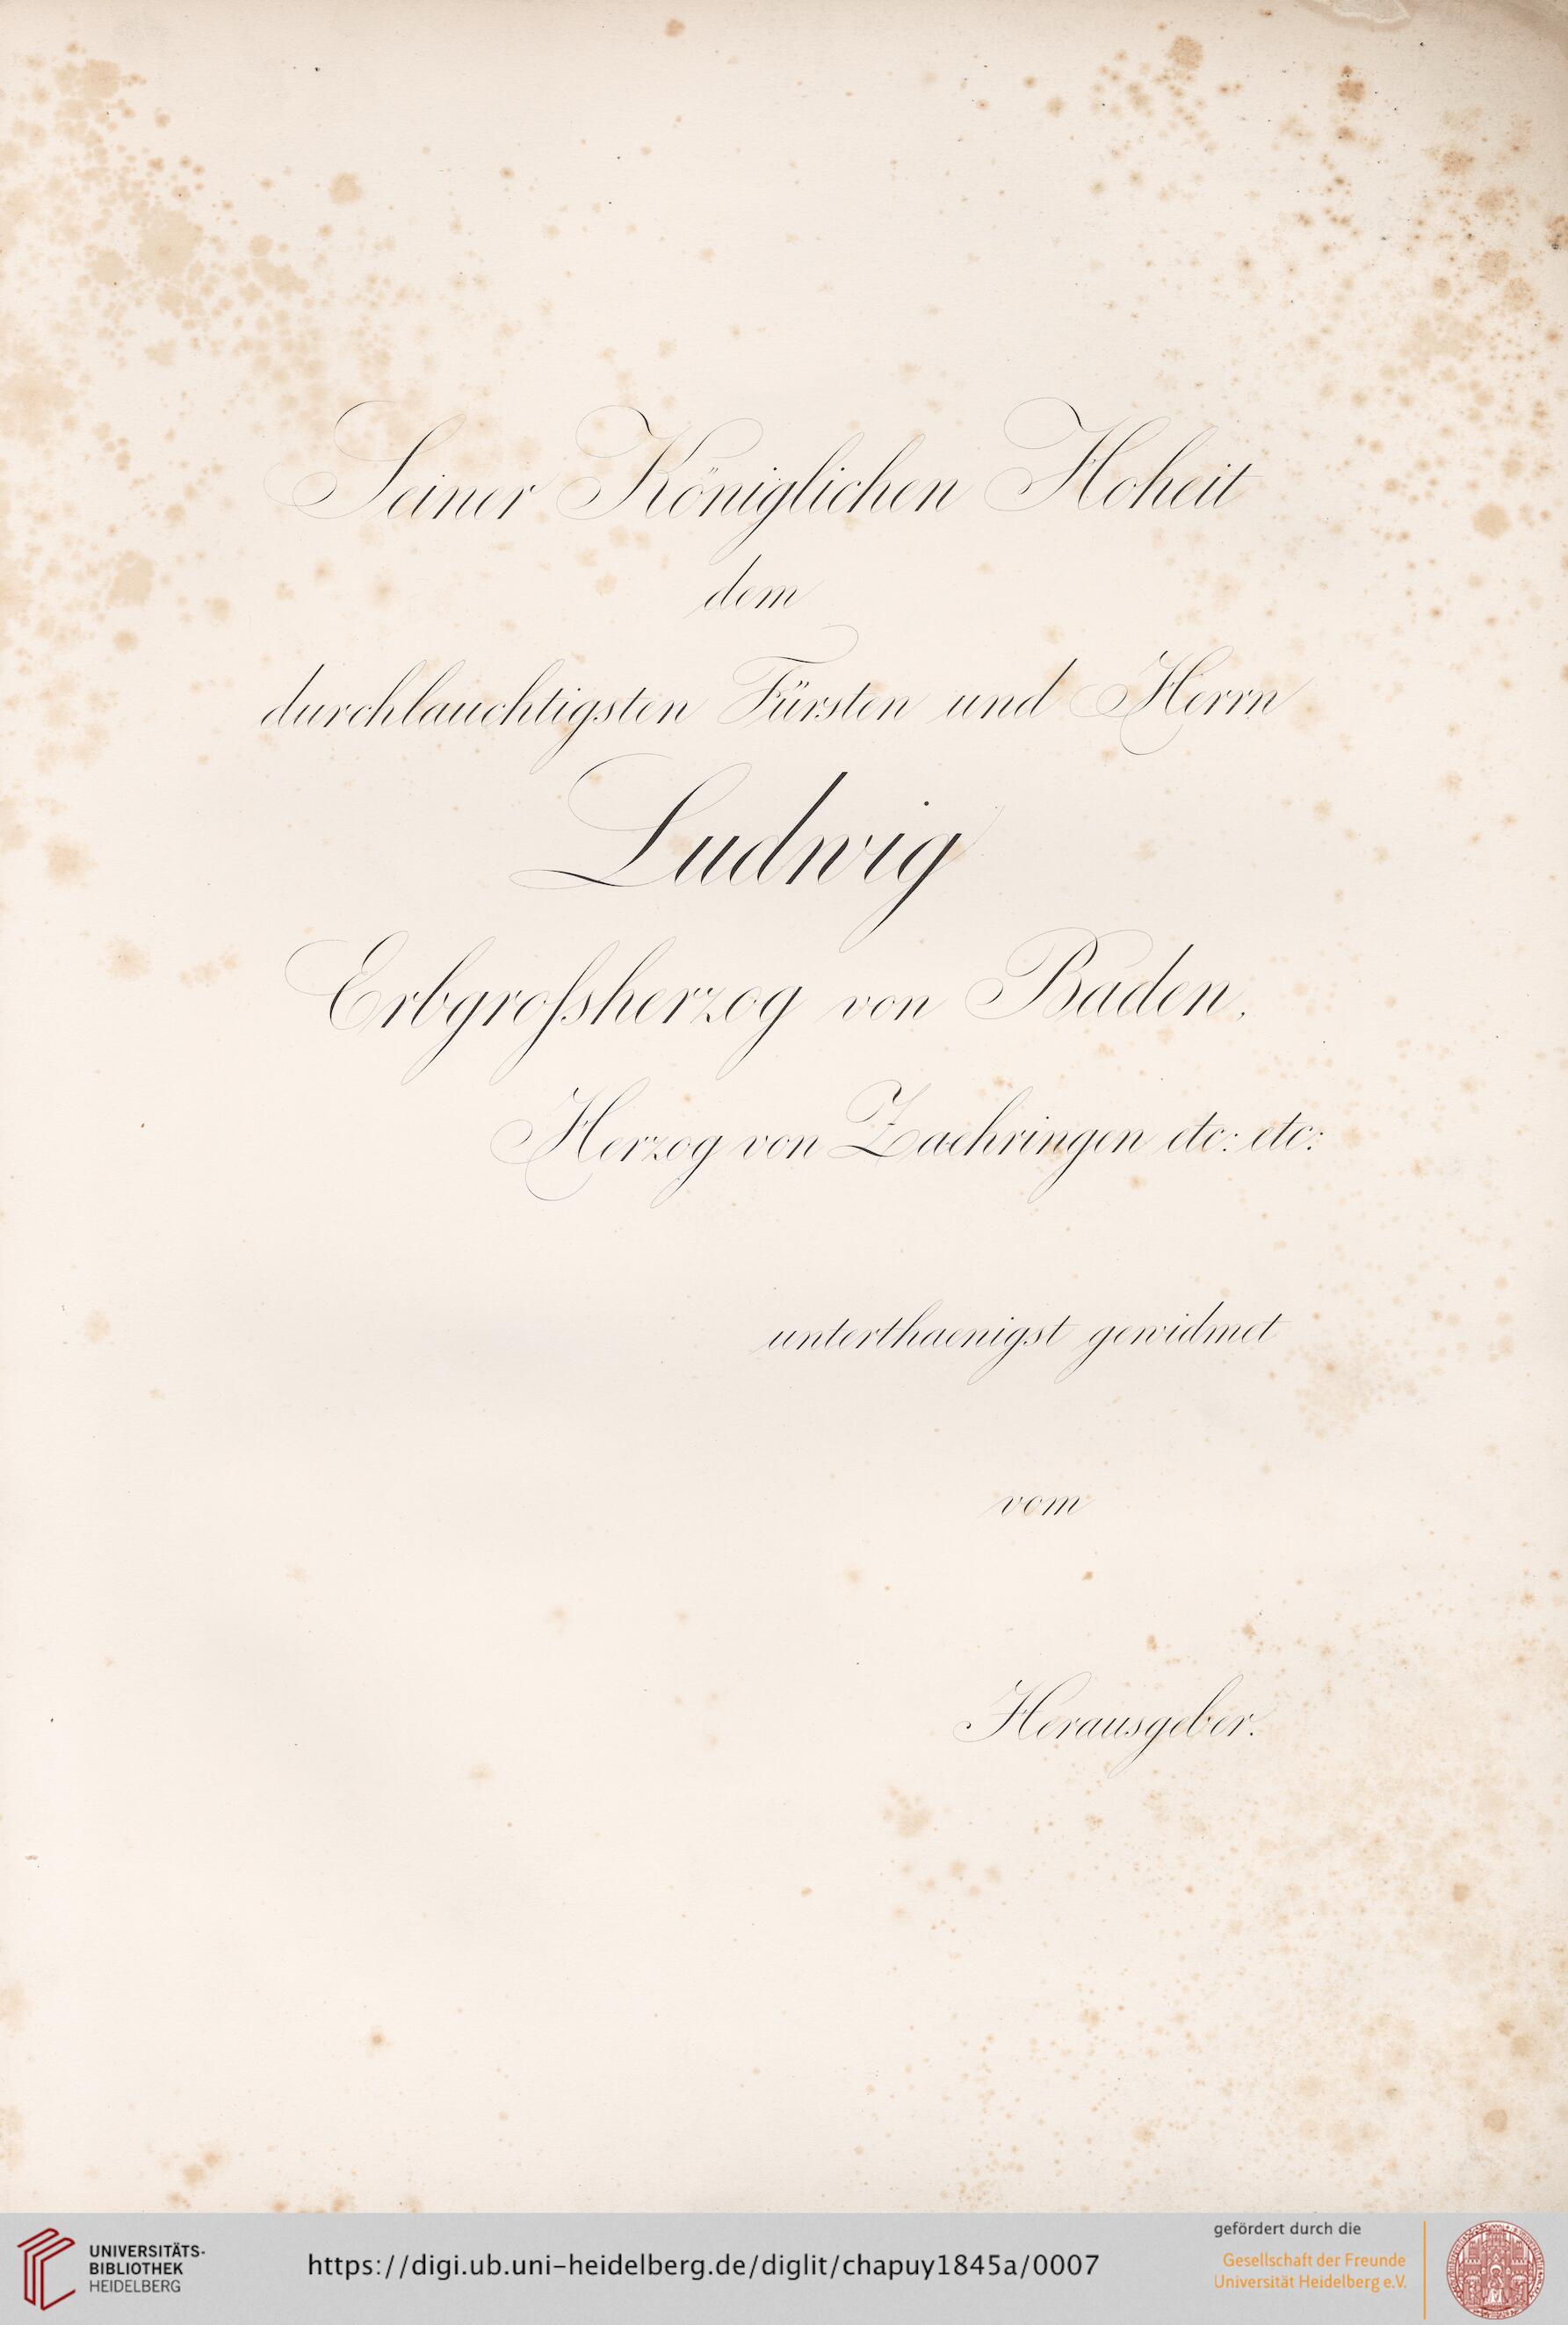 Seiner Königlichen Hoheit
dem
durchlauchtigsten Fürsten und Herrn
Ludwig
Erbgroſsherzog von Baden,
Herzog von Zaehringen etc: etc:
unterthaenigst gewidmet
vom
Herausgeber.
UNIVERSITÄTS-
BIBLIOTHEK
HEIDELBERG
https://digi.ub.uni-heidelberg.de/diglit/chapuy1845a/0007
gefördert durch die
Gesellschaft der Freunde
Universität Heidelberg e.V.